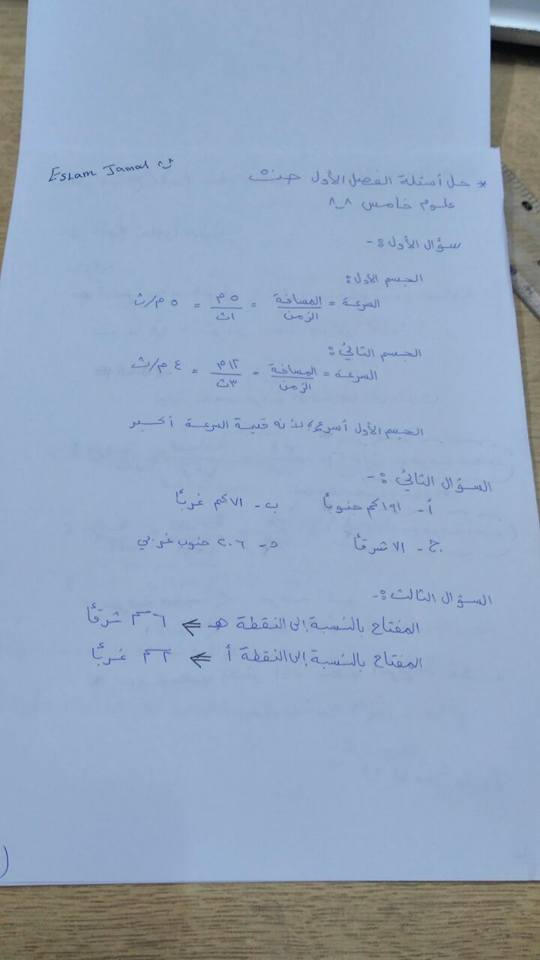 Eslam Jamal
* حل أسئلة الفصل الأول
علوم خامس ٨_٨
سؤال الأول :-
الجسم الأول:
السرعة = المسافة / الزمن = ٥م / ١ث = ٥ م/ث
الجسم الثاني:
السرعة = المسافة / الزمن = ١٢م / ٣ث = ٤ م/ث
الجسم الأول أسرع؛ لأنه قيمة السرعة أكبر
السؤال الثاني :-
أ- ١٩١كم جنوبًا ب- ٧١كم غربًا
ج- ٧١ شرقًا د- ٢٠٦ جنوب غربي
السؤال الثالث :-
المفتاح بالنسبة إلى النقطة هـ ⇐ ٦م شرقًا
المفتاح بالنسبة إلى النقطة أ ⇐ ٣م غربًا